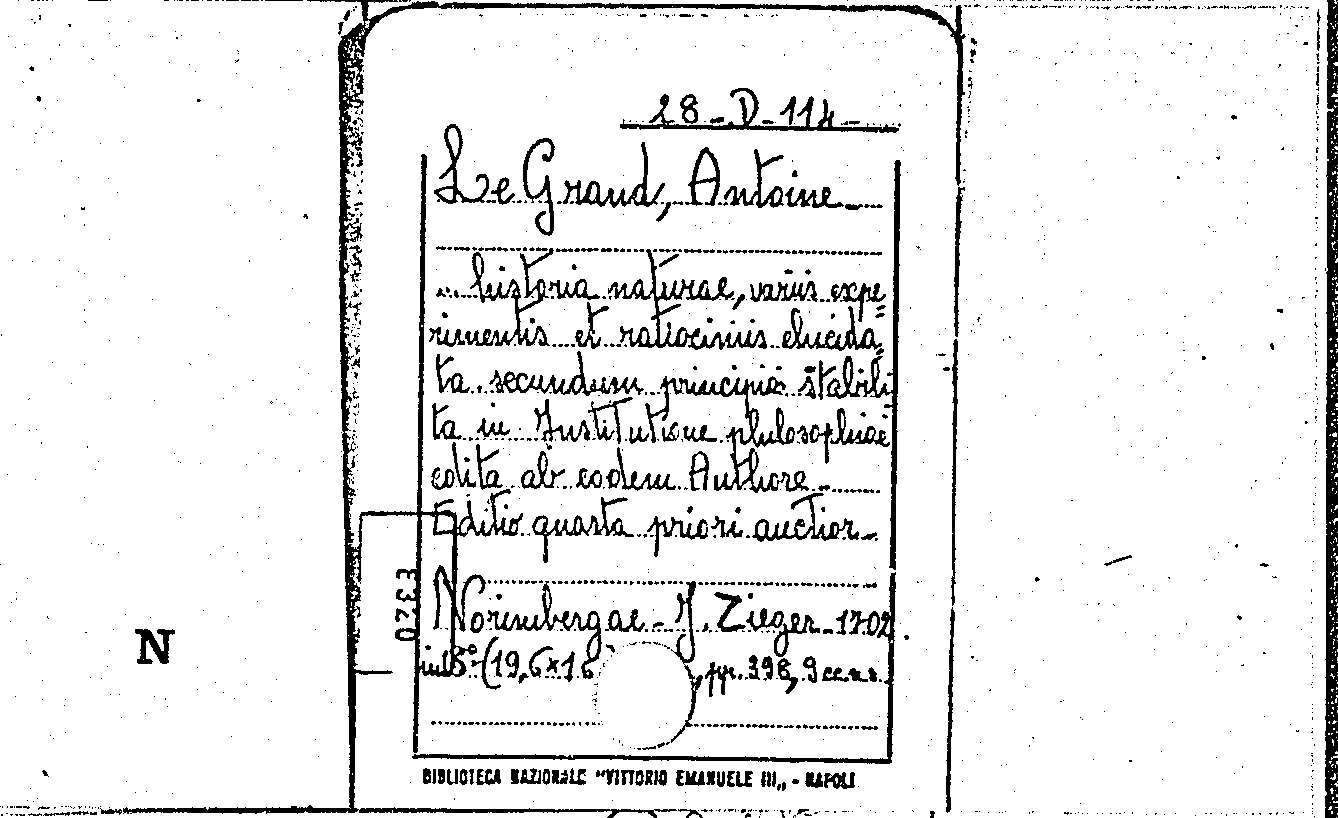 28-D-114-
Le Grand, Antoine-
... historia naturae, variis expe=
rimentis et ratiociniis elucida=
ta secundum principia stabili=
ta in Institutione philosophiae
edita ab eodem Authore-
Editio quarta priori auctior-
Norimbergae-J. Zieger-1702
in 8° (19,6×16 , pp. 398, 9 cc.n.n.
E3320
N
BIBLIOTECA NAZIONALE "VITTORIO EMANUELE III„ - NAPOLI